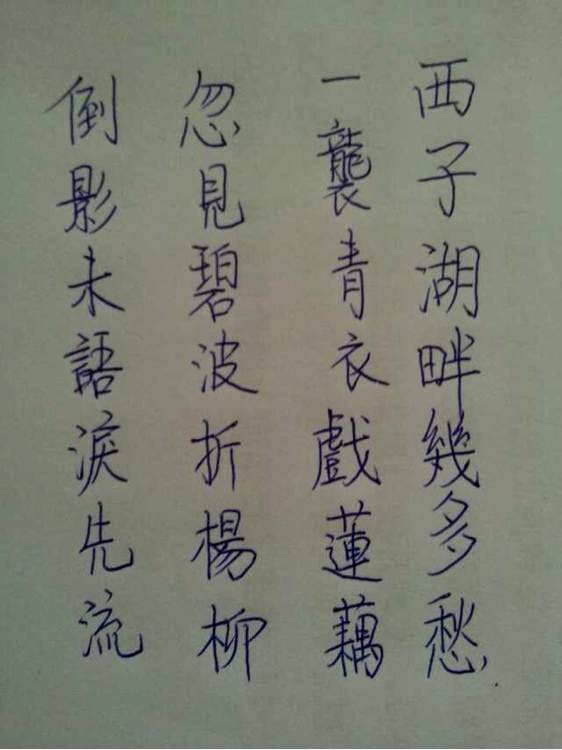 西子湖畔幾多愁
一襲青衣戲蓮藕
忽見碧波折楊柳
倒影未語淚先流